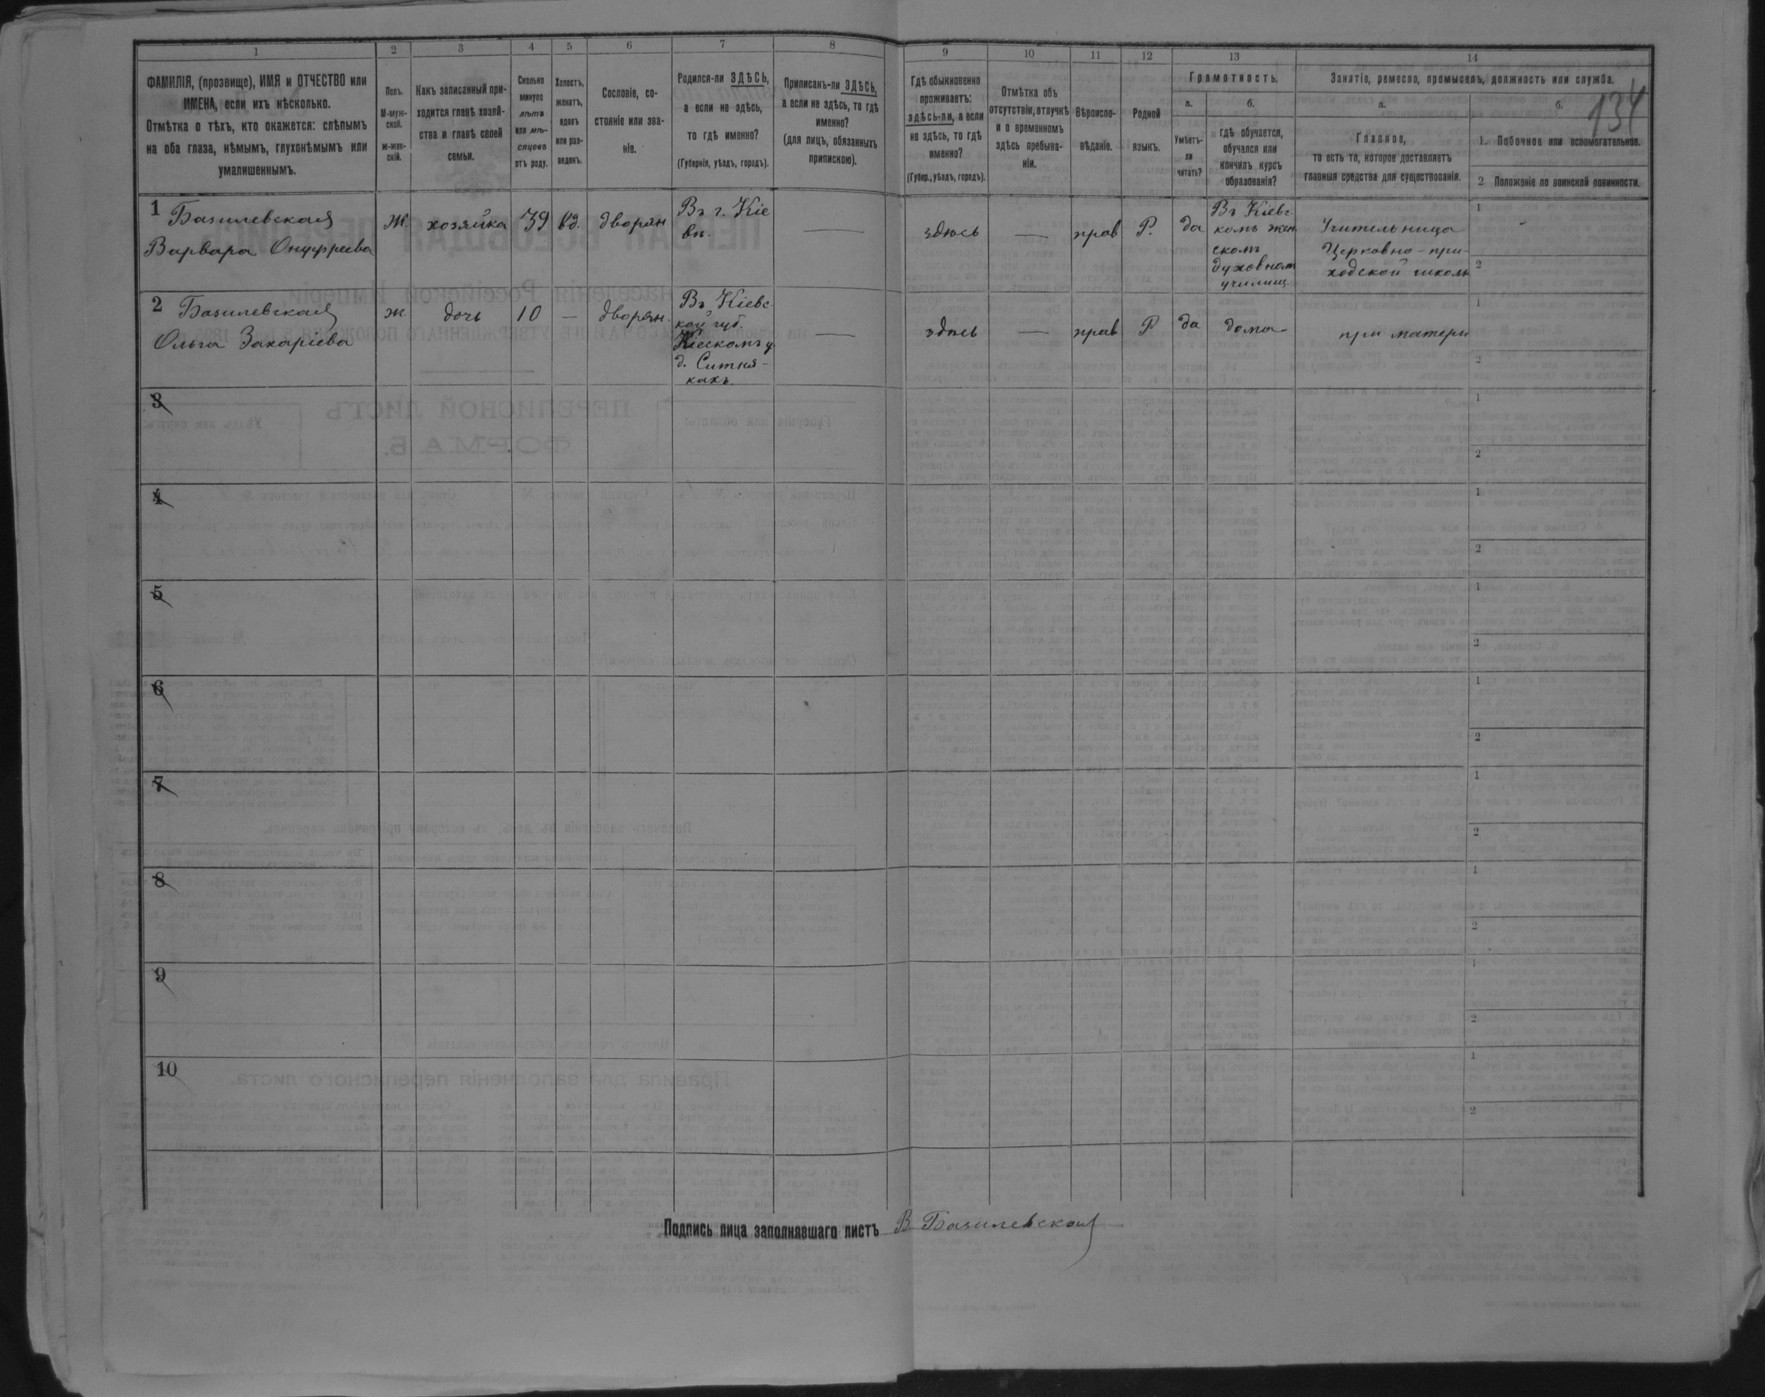 134
1
2
3
4
5
6
7
8
9
10
11
12
13
14
ФАМИЛІЯ, (прозвище), ИМЯ и ОТЧЕСТВО или
ИМЕНА, если ихъ нѣсколько.
Отмѣтка о тѣхъ, кто окажется: слѣпымъ
на оба глаза, нѣмымъ, глухонѣмымъ или
умалишеннымъ.
Полъ.
М-муж-
ской.
ж-жен-
скій.
Какъ записанный при-
ходится главѣ хозяй-
ства и главѣ своей
семьи.
Сколько
минуло
лѣтъ
или мѣ-
сяцевъ
отъ роду.
Холостъ,
женатъ,
вдовъ
или раз-
веденъ.
Сословіе, со-
стояніе или зва-
ніе.
Родился-ли ЗДѢСЬ,
а если не здѣсь,
то гдѣ именно?
(Губернія, уѣздъ, городъ).
Приписанъ-ли ЗДѢСЬ,
а если не здѣсь, то гдѣ
именно?
(для лицъ, обязанныхъ
припискою).
Гдѣ обыкновенно
проживаетъ:
здѣсь-ли, а если
не здѣсь, то гдѣ
именно?
(Губер., уѣздъ, городъ).
Отмѣтка объ
отсутствіи, отлучкѣ
и о временномъ
здѣсь пребыва-
ніи.
Вѣроиспо-
вѣданіе.
Родной
языкъ.
Грамотность.
а.
Умѣетъ-
ли
читать?
б.
гдѣ обучается,
обучался или
кончилъ курсъ
образованія?
Занятіе, ремесло, промыселъ, должность или служба.
а.
Главное,
то есть то, которое доставляетъ
главныя средства для существованія.
б.
1. Побочное или вспомогательное.
2 Положеніе по воинской повинности.
1
Базилевская
Варвара Онуфріева
Ж.
хозяйка
39
вд.
дворян
Въ г. Кіе
вѣ.
—
здѣсь
—
прав
Р.
да
Въ Кіевс
комъ жен
скомъ
духовном
училищ
Учительница
Церковно-при-
ходской школы
1
2
2
Базилевская
Ольга Захаріева
ж
дочь
10
—
дворян.
Въ Кіевс
кой губ.
Кіевскомъ у
д. Ситня-
кахъ.
—
здѣсь
—
прав
Р
да
дома
при матери
1
2
3
1
2
4
1
2
5
1
2
6
1
2
7
1
2
8
1
2
9
1
2
10
1
2
Подпись лица заполнявшаго листъ В Базилевская